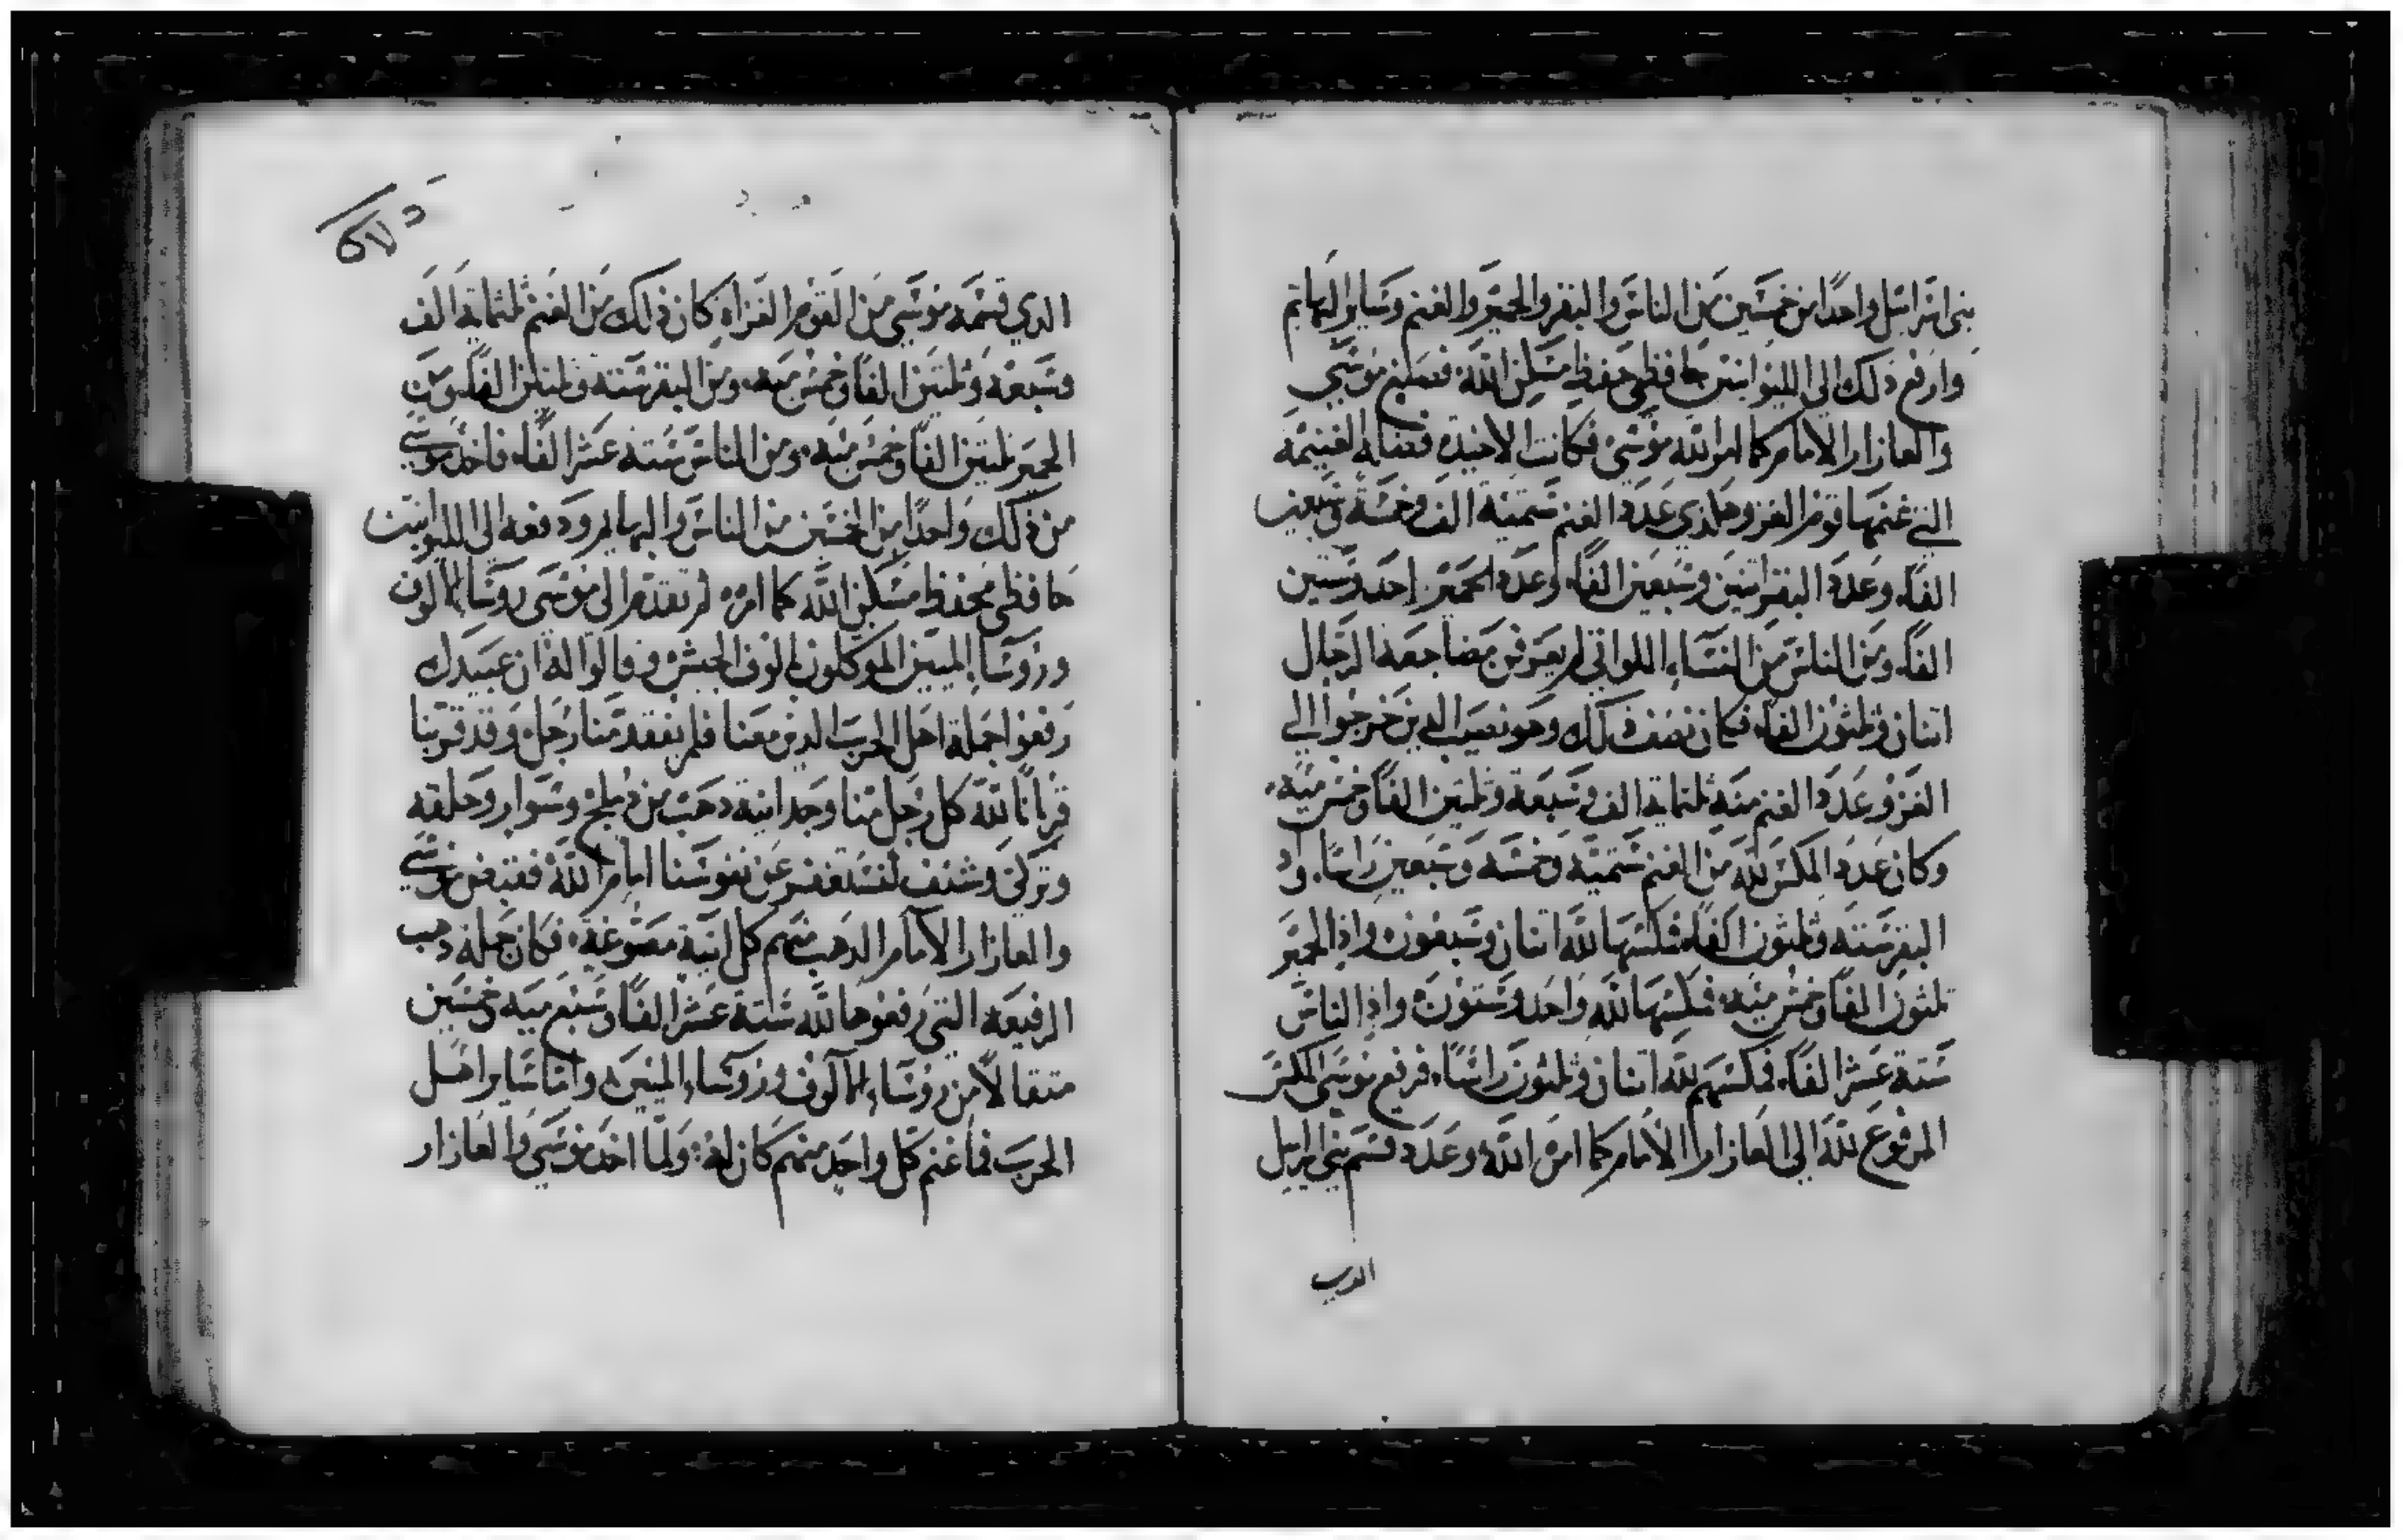 بني اسرائيل واحدًا من خمسين من الناس والبقر والحمير والغنم وساير البهايم
وارفع ذلك الى الليوانيين حافظي حفظ مسكن الله فصنع موسى
والعازار الامام كما امر الله موسى فكانت الاخيدة فضالة الغنيمة
التي غنمها قوم الغزو هذي عدد الغنم ستمية الف وخمسة وسبعين
الفًا وعدد البقر اتنين وسبعين الفًا وعدد الحمير احد وستين
الفًا ومن الناس من النساء اللواتي لم يعرفن مضاجعة الرجال
اتنان وثلثون الفا فكان نصف ذلك وهو نصيب الدين خرجوا الى
الغزو عدد الغنم منه ثلثماية الف وسبعة وثلثين الفًا وخمس ميه
وكان عدد المكس لله من الغنم ستمية وخمسة وسبعين راسًا واد
البقر ستة وثلثون الفًا فمكسها لله اتنان وسبعون واد الحمير
تلثون الفًا وخمس ميه فمكسها لله واحد وستون واد الناس
ستة عشر الفًا فمكسهم لله اتنان وثلثون راسًا فرفع موسى المكس
المرفوع لله الى العازار الامام كما امره الله وعدد قسم بني اسرايل
الدي
الدي قسمه موسى من القوم الغزاة كان ذلك من الغنم ثلثماية الف
وسبعة وثلثين الفًا وخمس ميه ومن البقر ستة وثلثين الفًا ومن
الحمير ثلثين الفًا وخمس ميه ومن الناس ستة عشر الفًا فاخد موسى
من ذلك واحدًا من الخمسين من الناس والبهايم ودفعه الى الليوانيين
حافظي محفظ مسكن الله كما امره ثم تقدم الى موسى روسا الالوف
وروسا الميين الموكلون بالوف الجيش وقالوا له ان عبيدك
رفعوا جملة اهل الحرب الدين معنا فلم يفقد منا رجل وقد قربنا
قربانًا لله كل رجل منا وجد انية دهب من دملج وسوار وحلقه
وتركي وشنف لنستغفر عن نفوسنا امام الله فقبض موسى
والعازار الامام الدهب منهم كل انية مصوغة فكان جملة دهب
الرفيعه التي رفعوها لله ستة عشر الفًا وسبع ميه وخمسين
متقالًا من روساء الالوف وروساء الميين واما ساير اهل
الحرب فما غنم كل واحد منهم كان له ولما اخد موسى والعازار